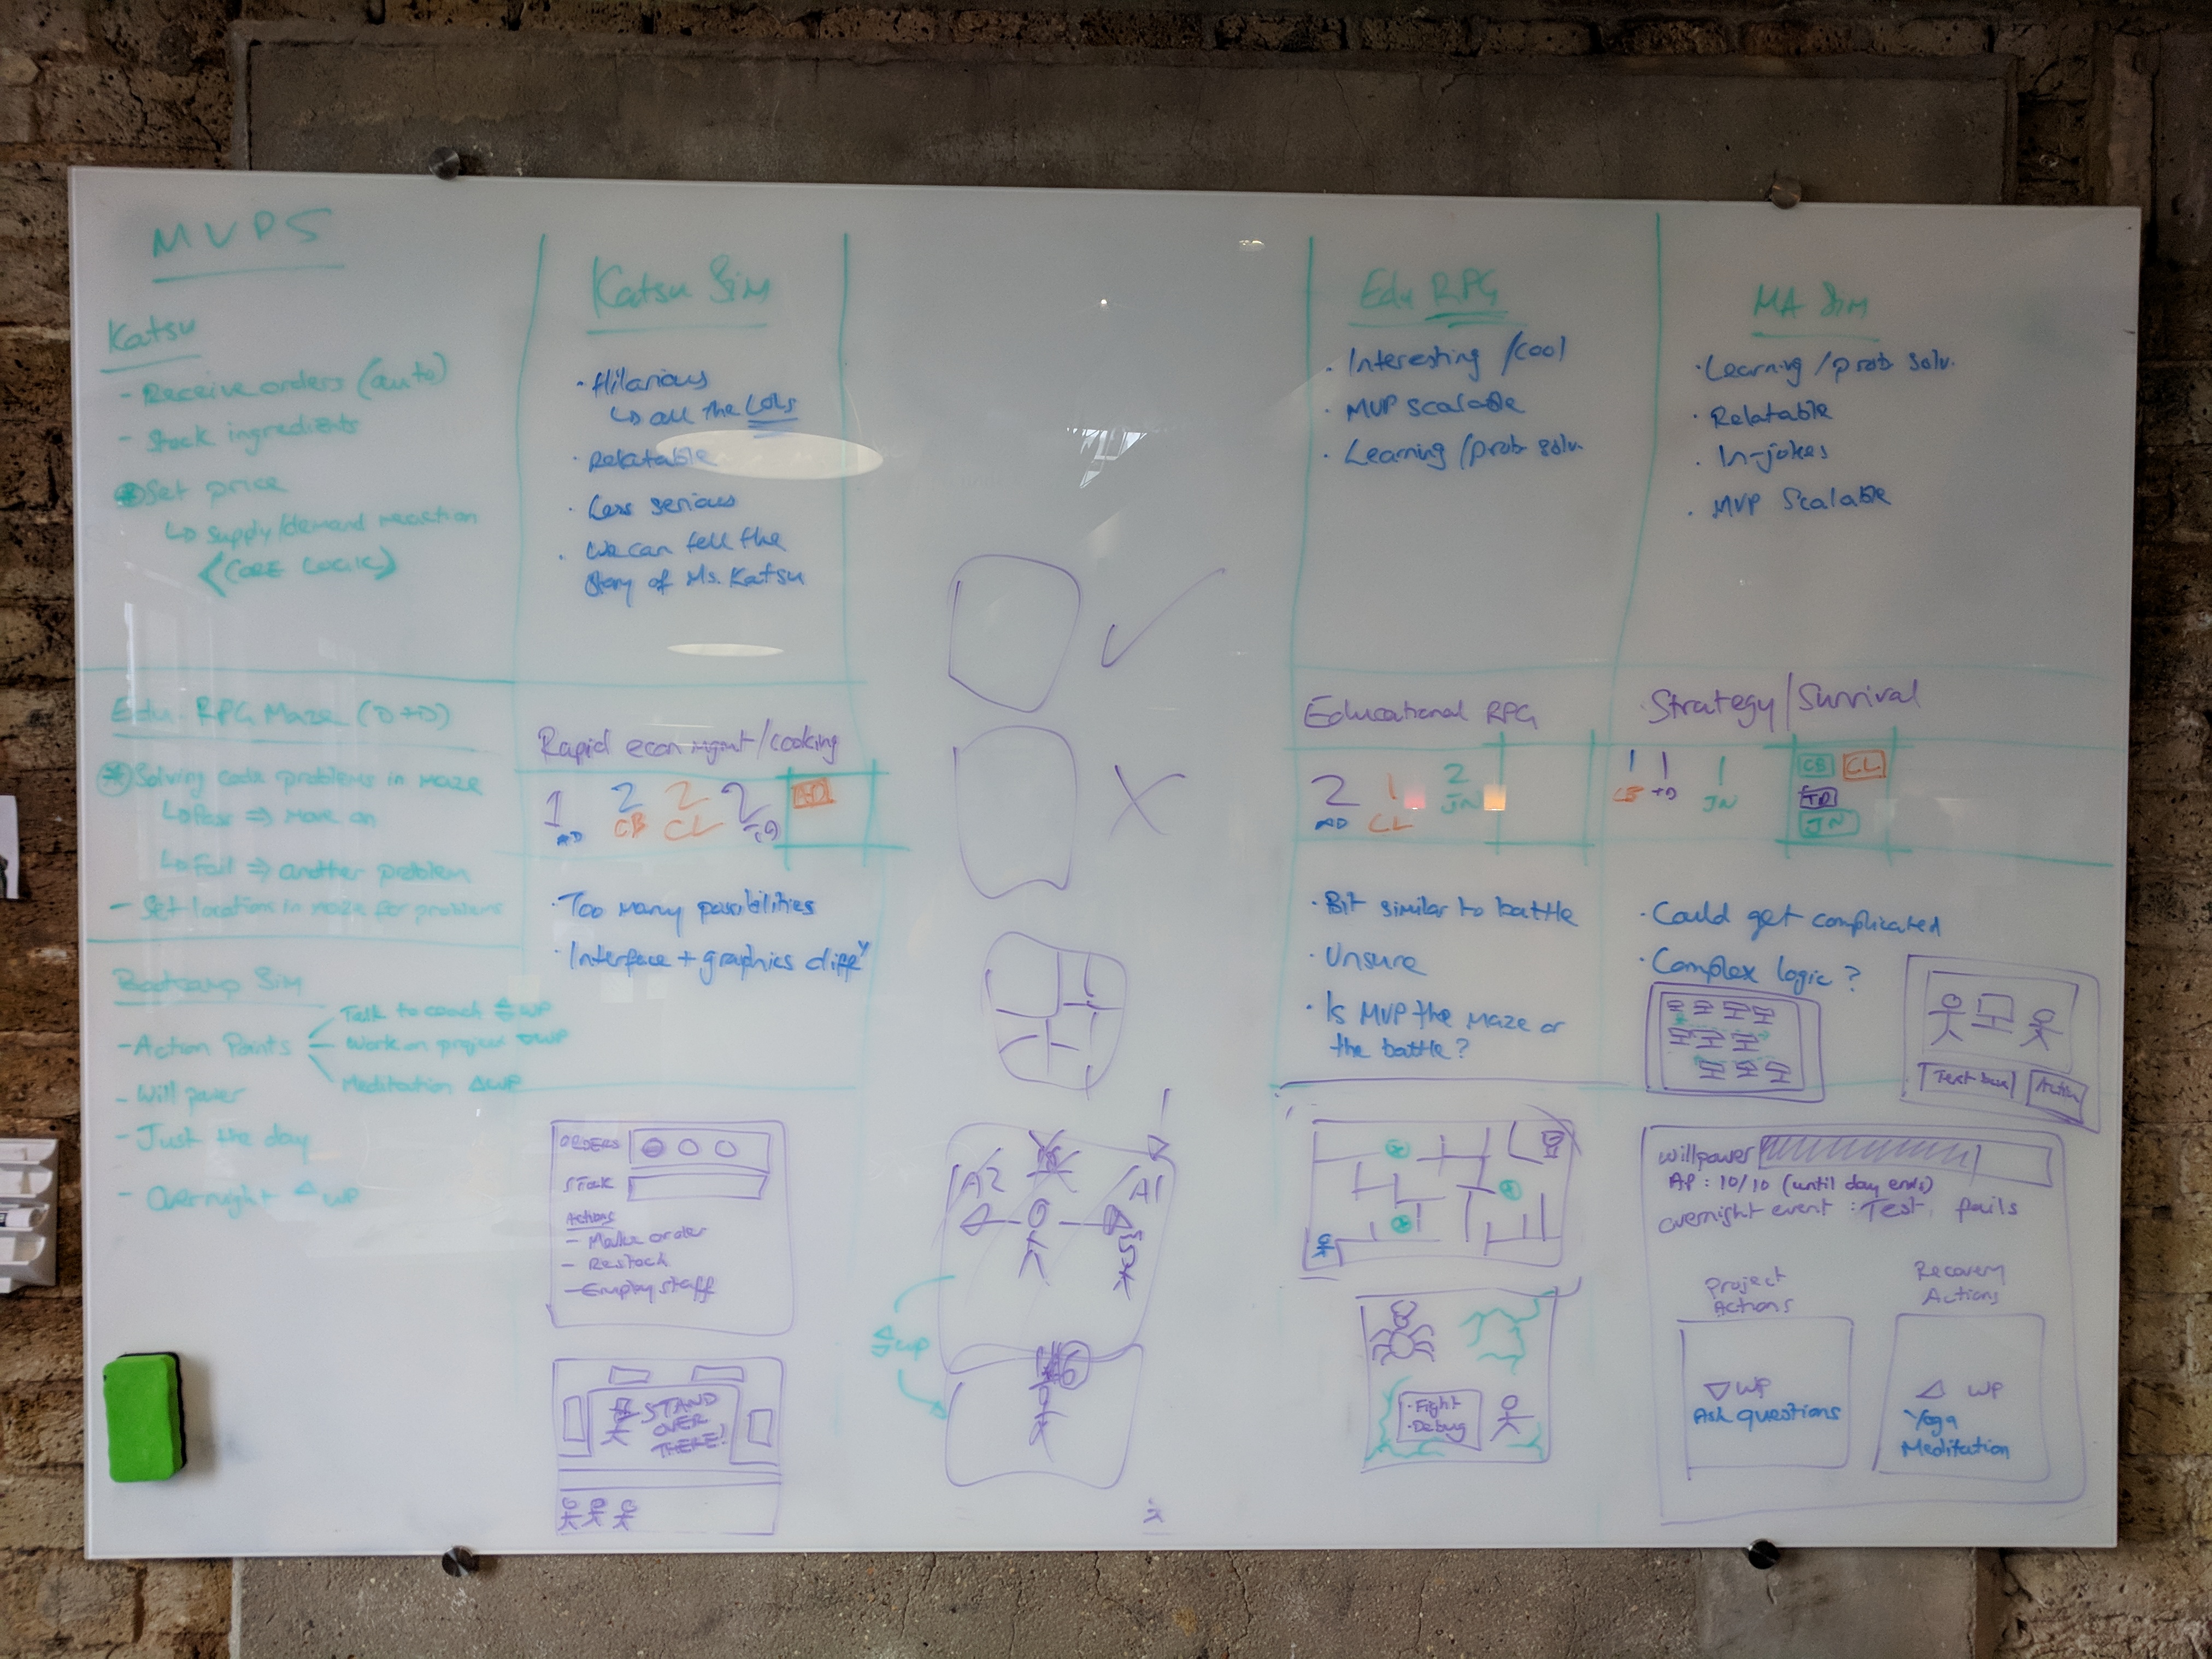 MVPS
Katsu
- Receive orders (auto)
- Stock ingredients
* Set price
↳ Supply/demand reaction
<(CORE LOGIC)>
Edu. RPG Maze (D+D)
* Solving code problems in maze
↳ Pass ⇒ move on
↳ Fail ⇒ another problem
- Set locations in maze for problems
Bootcamp Sim
- Action Points
Talk to coach WP
Work on project ▽WP
Meditation △WP
- Will power
- Just the day
- Overnight △ WP
Katsu Sim
· Hilarious
↳ all the LOLs
· Relatable
· Less serious
· We can tell the
story of Ms. Katsu
Rapid econ mgmt/cooking
1 2 2 2
AD CB CL TD
AD
· Too many possibilities
· Interface + graphics diffy
ORDERS
STOCK
Actions
- Make order
- Restock
- Employ staff
STAND
OVER
THERE!
✓
X
A2 A1
WP
Edu RPG
· Interesting /cool
· MVP scalable
· Learning /prob solv.
Educational RPG
2 1 2
AD CL JN
· Bit similar to battle
· Unsure
· Is MVP the maze or
the battle?
· Fight
· Debug
MA Sim
· Learning /prob solv.
· Relatable
· In-jokes
· MVP Scalable
Strategy/Survival
1 1 1
TD JN
CB CL
TD
JN
· Could get complicated
· Complex logic?
Text box
Action
Willpower
AP : 10/10 (until day ends)
overnight event : Test fails
Project
Actions
▽ WP
Ask questions
Recovery
Actions
△ WP
Yoga
Meditation